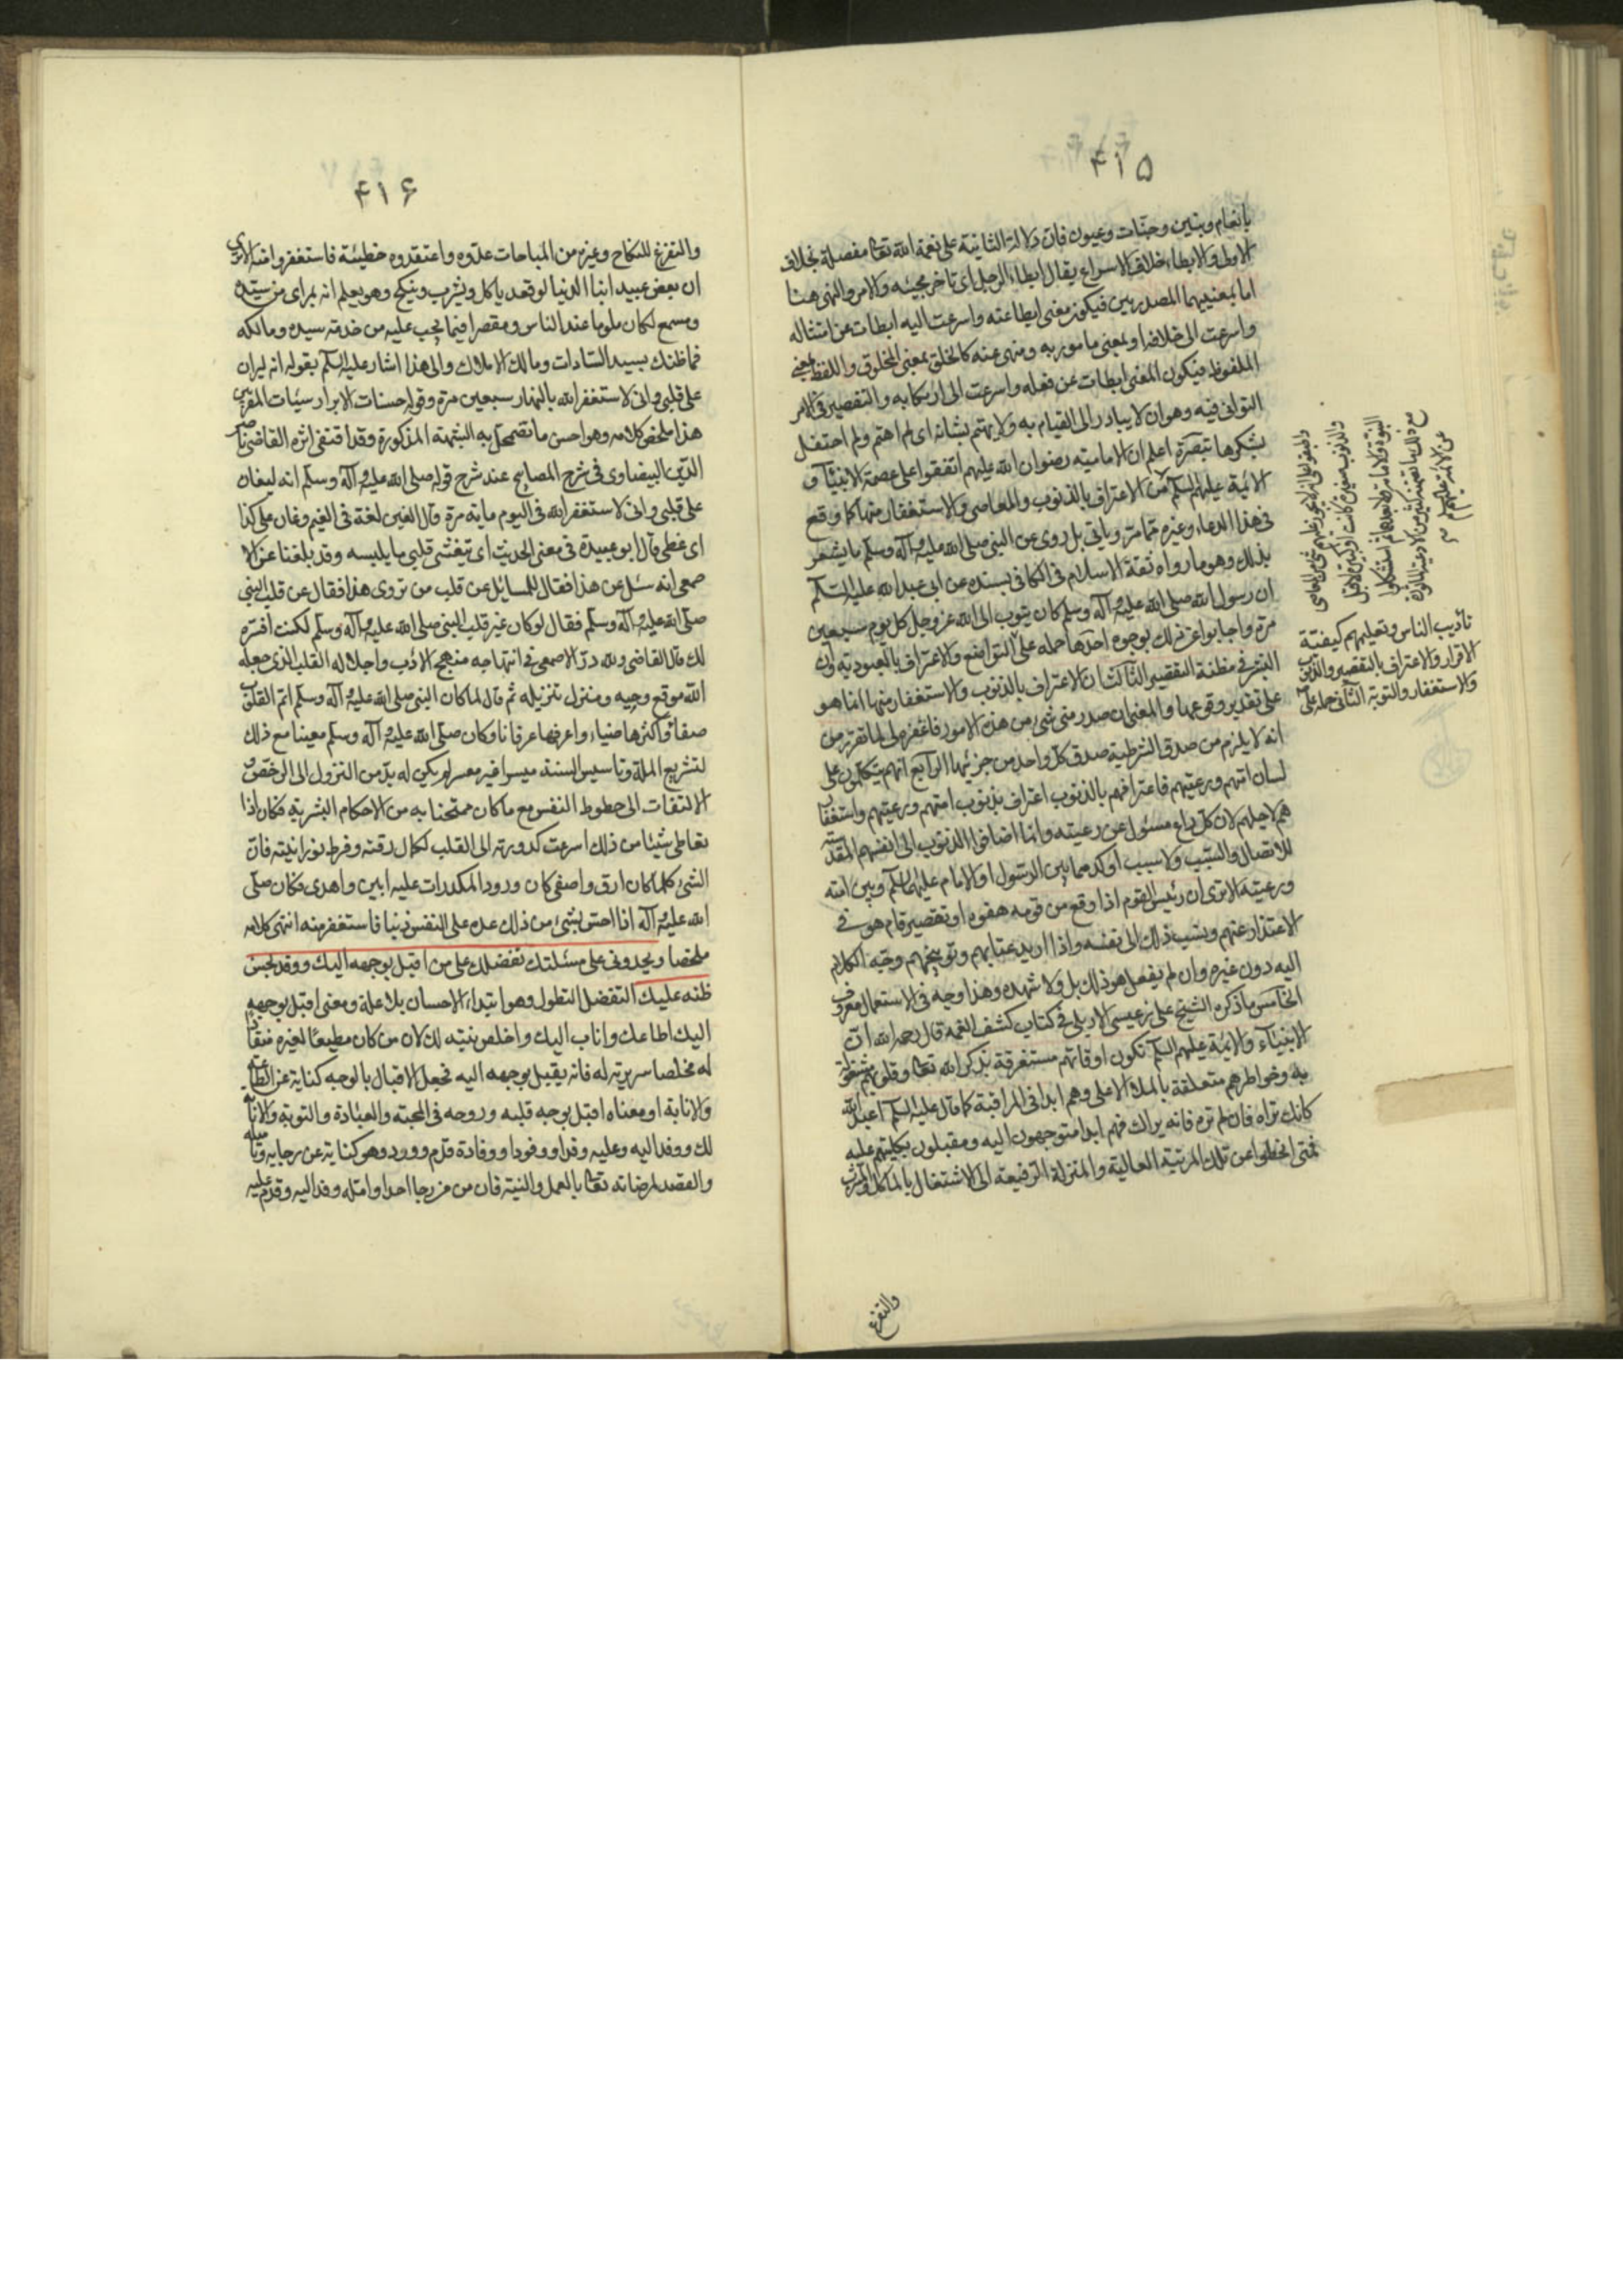 ۴۱۵
بانعام وبنين وجنّات وعيون فان دلالة الثانية على نعمة الله تعا مفصلة بخلاف
الاولى والابطاء خلاف الاسراع يقال ابطاء الرجل اى تاخر مجيئه والامر والنهى هنا
اما بمعنييهما المصدريين فيكون معنى ابطا عنه واسرعت اليه ابطات عن امتثاله
واسرعت الى خلافه او بمعنى مامور به ومنهى عنه كالخلق بمعنى المخلوق واللفظ بمعنى
الملفوظ فيكون المعنى ابطات عن فعله واسرعت الى ارتكابه والتقصير فى الامر
التوانى فيه وهو ان لا يبادر الى القيام به ولا يهتم بشانه اى لم اهتم ولم احتفل
بشكرها تبصرة اعلم ان الامامية رضوان الله عليهم اتفقوا على عصمة الانبيآء و
الائمة عليهم السلم من الاعتراف بالذنوب والمعاصى والاستغفار منها كما وقع
فى هذا الدعاء وغيره مما مرّ وياتى بل روى عن النبى صلى الله عليه وآله وسلم ما يشعر
بذلك وهو ما رواه ثقة الاسلام فى الكافى بسنده عن ابى عبد الله عليه السلم
ان رسول الله صلى الله عليه وآله وسلم كان يتوب الى الله عز وجل كل يوم سبعين
مرة واجابوا عن ذلك بوجوه احدها حمله على التواضع والاعتراف بالعبودية وان
البشر فى مظنة التقصير الثالث ان الاعتراف بالذنوب والاستغفار منها انما هو
على تقدير وقوعها والمعنى ان صدر منى شئ من هذه الامور فاغفره لى لما تقرر من
انه لا يلزم من صدق الشرطية صدق كل واحد من جزئيها الرابع انهم يتكلمون على
لسان امتهم ورعيتهم فاعترافهم بالذنوب اعتراف بذنوب امتهم ورعيتهم واستغفار
هم لاجلهم لان كل راع مسئول عن رعيته وانما اضافوا الذنوب الى انفسهم المقدسة
للاتصال والسبب ولا سبب اوكد مما بين الرسول او الامام عليهما السلم وبين امته
ورعيته الا ترى ان رئيس القوم اذا وقع من قومه هفوه او تقصير قام هو فى
الاعتذار عنهم ونسب ذلك الى نفسه واذا اريد عتابهم وتوبيخهم وجه الكلام
اليه دون غيره وان لم يفعل هو ذلك بل ولا شهده وهذا وجيه فى الاستعمال معروف
الخامس ما ذكره الشيخ على بن عيسى الاربلى فى كتاب كشف الغمه قال رحمه الله ان
الانبيآء والائمة عليهم السلم تكون اوقاتهم مستغرقة بذكر الله تعا وقلوبهم مشغولة
به وخواطرهم متعلقة بالملاء الاعلى وهم ابدا فى المراقبة كما قال عليه السلم اعبد الله
كانك تراه فان لم تره فانه يراك فهم ابدا متوجهون اليه ومقبلون بكليتهم عليه
فمتى انحطوا عن تلك المرتبة العالية والمنزلة الرفيعة الى الاشتغال بالماكل والمشرب
والتفرغ
تأديب الناس وتعليمهم كيفيّة
الاقرار والاعتراف بالتقصير والذنوب
والاستغفار والتوبة الثانى حمله على
۴۱۶
والتفرغ للنكاح وغيره من المباحات عدّوه واعتقدوه خطيئة فاستغفروا منه الا ترى
ان بعض عبيد ابناء الدنيا لو قعد ياكل ويشرب وينكح وهو يعلم انه بمراى من سيّده
ومسمع لكان ملوما عند الناس ومقصرا فيما يجب عليه من خدمة سيده ومالكه
فما ظنك بسيد السّادات ومالك الاملاك والى هذا اشار عليه السلم بقوله انه ليران
على قلبى وانى لاستغفر الله بالنهار سبعين مرة وقوله حسنات الابرار سيئات المقربين
هذا ملخص كلامه وهو احسن ما تضمحل به الشبهة المذكورة وقد اقتفى اثره القاضى ناصر
الدّين البيضاوى فى شرح المصابيح عند شرح قوله صلى الله عليه وآله وسلم انه ليغان
على قلبى وانى لاستغفر الله فى اليوم ماية مرة قال الغين لغة فى الغيم وغان على كذا
اى غطى قال ابو عبيدة فى معنى الحديث اى يتغشى قلبى ما يلبسه وقد بلغنا عن الا
صمعى انه سئل عن هذا فقال للسايل عن قلب من تروى هذا فقال عن قلب النبى
صلى الله عليه وآله وسلم فقال لو كان غير قلب النبى صلى الله عليه وآله وسلم لكنت افسره
لك قال القاضى ولله درّ الاصمعى فى انتهاجه منهج الادب واجلاله القلب الذى جعله
الله موقع وحيه ومنزل تنزيله ثم قال لما كان النبى صلى الله عليه وآله وسلم اتم القلوب
صفاء واكثرها ضياء واعرفها عرفانا وكان صلى الله عليه وآله وسلم معينا مع ذلك
لتشريع الملة وتاسيس السنة ميسرا غير معسر لم يكن له بدّ من النزول الى الرخص و
الالتفات الى حظوظ النفس مع ما كان ممتحنا به من الاحكام البشرية فكان اذا
تعاطى شيئا من ذلك اسرعت كدورته الى القلب لكمال رقته وفرط نورانيته فان
الشئ كلما كان ارق واصفى كان ورود المكدرات عليه ابين واهدى فكان صلّى
الله عليه وآله اذا احس بشئ من ذلك عده على النفس ذنبا فاستغفر منه انتهى كلامه
ملخصا ويحدونى على مسئلتك تفضلك على من اقبل بوجهه اليك ووفد بحسن
ظنه عليك التفضل التطول وهو ابتداء الاحسان بلا علة ومعنى اقبل بوجهه
اليك اطاعك واناب اليك واخلص نيته لك لان من كان مطيعًا لغيره منقادا
له مخلصا سريرته له فانه يقبل بوجهه اليه فجعل الاقبال بالوجه كناية عن الطاعة
والانابة او معناه اقبل بوجه قلبه وروحه فى المحبة والعبادة والتوبة والانابة
لك ووفد اليه وعليه وفدا ووفودا ووفادة قدم وورد وهو كناية عن رجايه
والقصد لمرضاته تعا بالعمل والنية فان من رجا احدا وامّله وفد اليه وقدم عليه